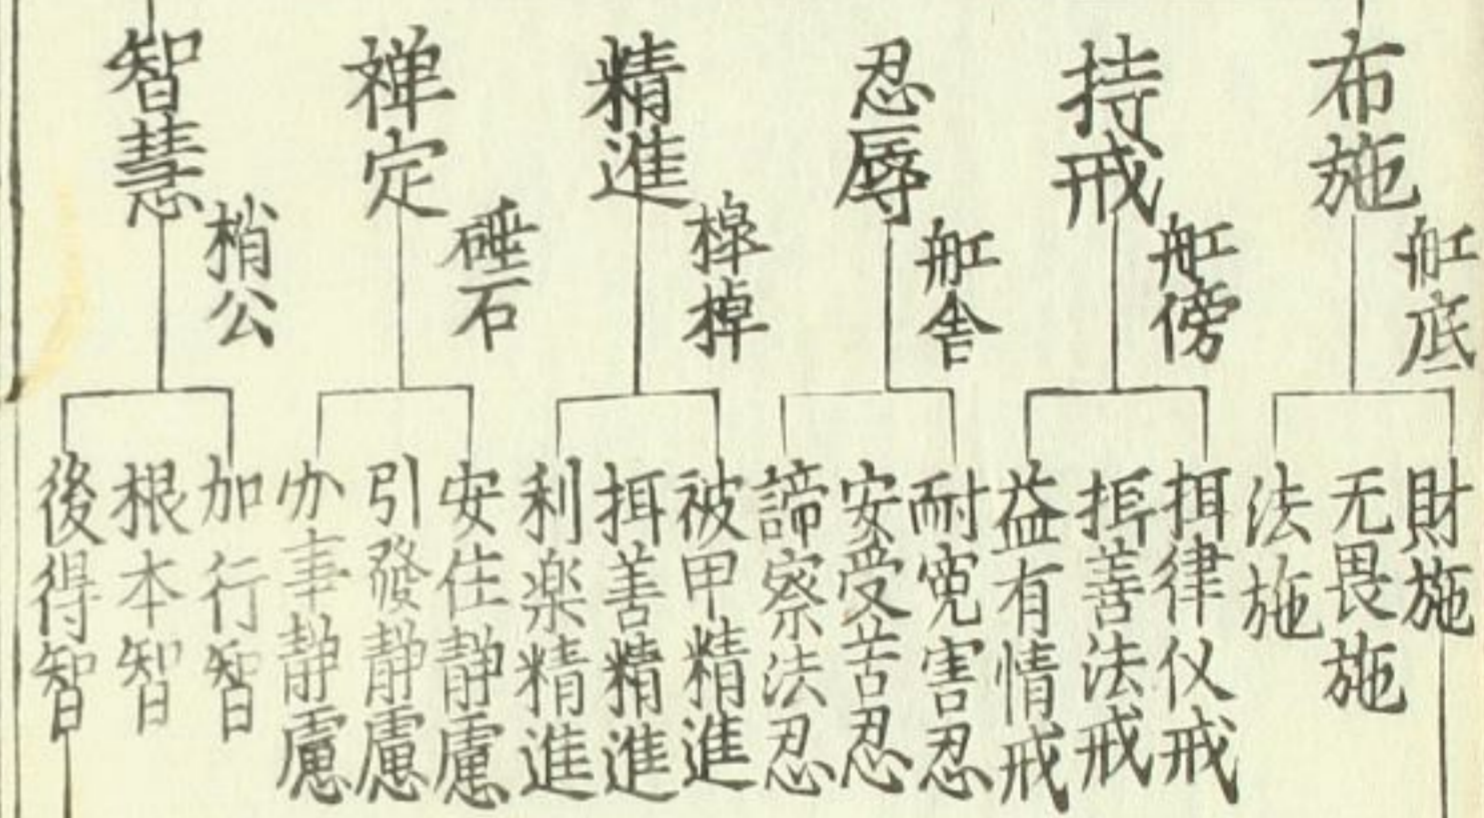 布施
舡底
財施
无畏施
法施
持戒
舡傍
摂律仪戒
摂善法戒
益有情戒
忍辱
舡舎
耐寃害忍
安受苦忍
諦察法忍
精進
被甲精進
摂善精進
利楽精進
禅定
硾石
安住静慮
引發静慮
办事静慮
智慧
梢公
加行智
根本智
後得智